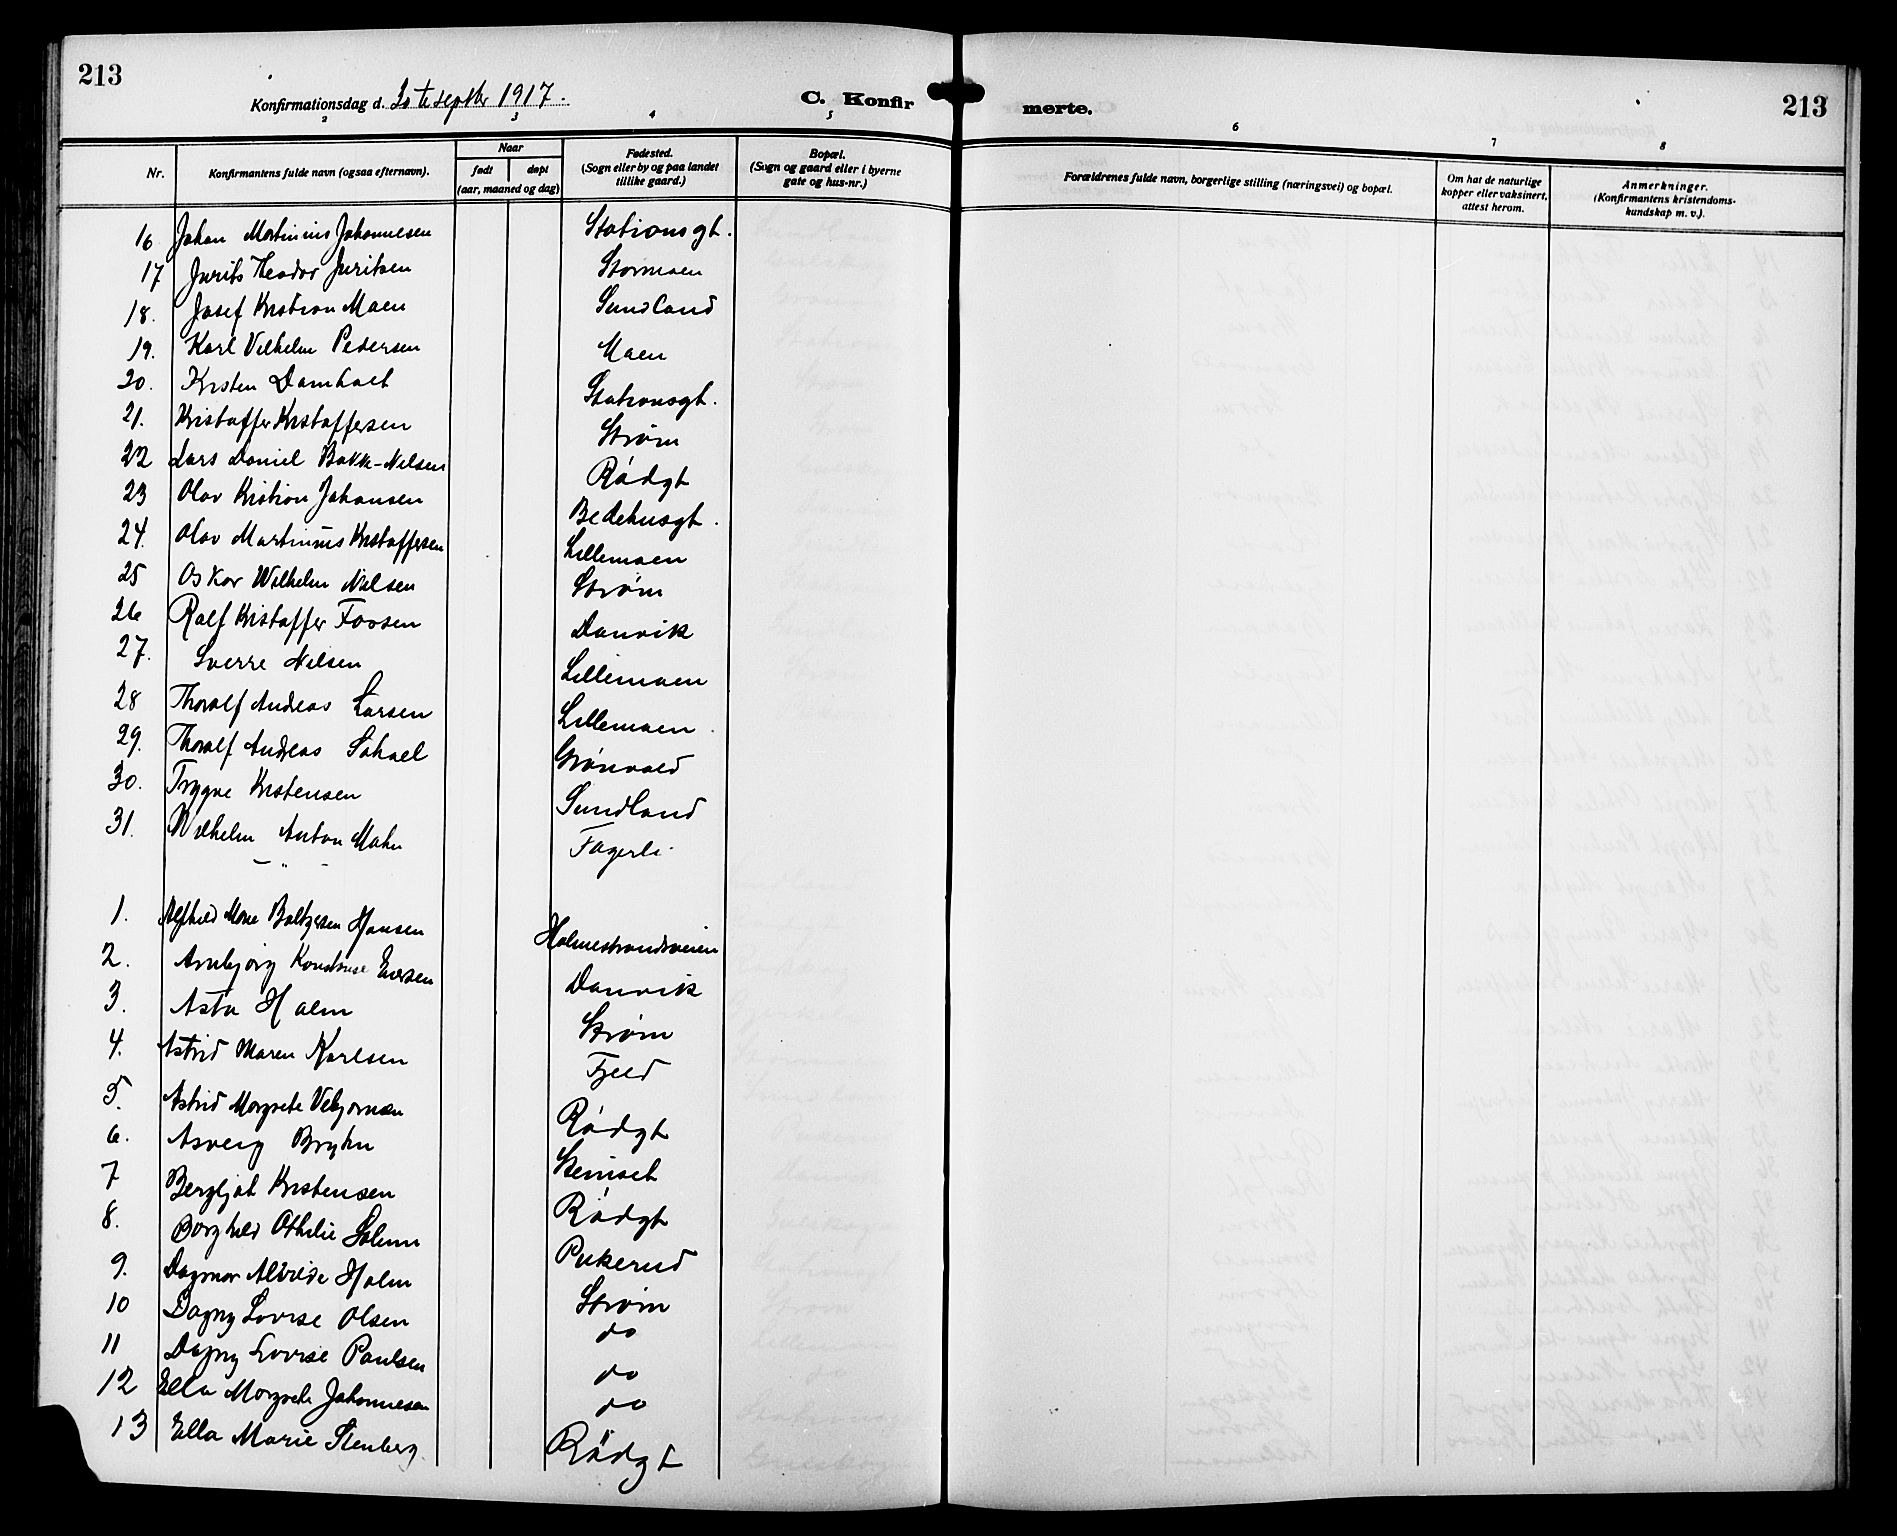 213
Konfirmationsdag d. septbr 1917.
C. Konfir
merte.
213
2 3 4 5 6 7 8
Nr.
Konfirmantens fulde navn (ogsaa efternavn).
Naar
født døpt
(aar, maaned og dag)
Fødested.
(Sogn eller by og paa landet
tillike gaard.)
Bopæl.
(Sogn og gaard eller i byerne
gate og hus-nr.)
Forældrenes fulde navn, borgerlige stilling (næringsvei) og bopæl.
Om hat de naturlige
kopper eller vaksinert,
attest herom.
Anmerkninger.
(Konfirmantens kristendoms-
kundskap m. v.).
16 Johan Martinius Johannesen Stationsgt.
17 Jurits Teodor Juritsen Stormoen
18. Josef Kristian Moen Sundland
19. Karl Vilhelm Pedersen Moen
20. Kristen Damholt Stationsgt.
21. Kristoffer Kristoffersen Strøm
22 Lars Daniel Bakk-Nilsen Rådgt
23 Olav Kristian Johansen Bedehusgt.
24. Olav Martinius Kristoffersen Lillemoen
25 Oskar Wilhelm Nilsen Strøm
26 Ralf Kristoffer Fossen Danvik
27. Sverre Nilsen Lillemoen
28 Thoralf Andreas Larsen Lillemoen.
29. Thoralf Andreas Grønvold
30. Trygve Kristensen Sundland
31. Vilhelm Anton Mohn Fagerli
— " —
1. Alfhild Marie Baltzersen Hansen Holmestrandsveien
2. Arnbjørg Konstanse Iversen Danvik
3. Asta Holm Strøm
4. Astrid Maren Karlsen Fjeld
5. Astrid Margrete Vebjørnsen Rådgt
6. Asveig Bryhn Stenset
7 Bergljot Kristensen Rådgt
8. Borghild Othelie Solum Pukerud
9. Dagmar Alvilde Holm Strøm
10 Dagny Lovise Olsen do
11 Dagny Lovise Paulsen do
12 Ella Margrete Johannesen do
13 Ella Marie Stenberg. Rådgt